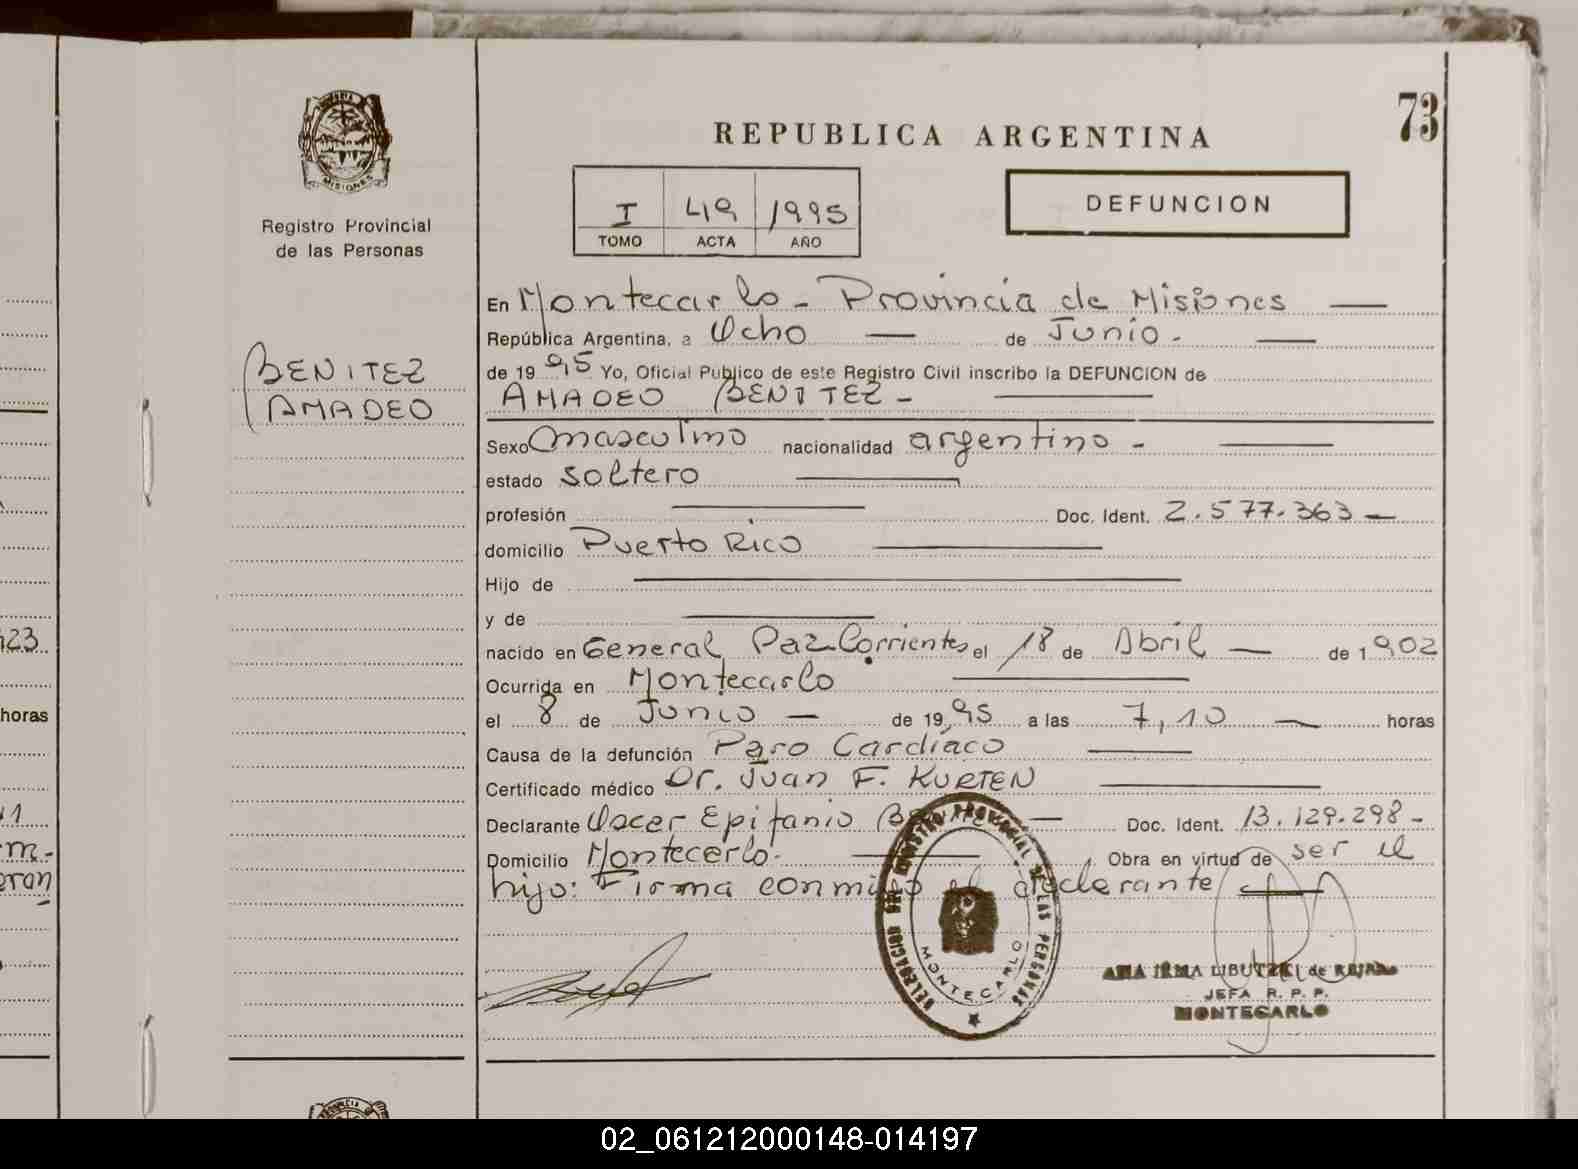 23
horas
1
m.-
eran
PROVINCIA
MISIONES
Registro Provincial
de las Personas
BENITEZ
AMADEO
73
REPUBLICA ARGENTINA
I 49 1995
TOMO ACTA AÑO
DEFUNCION
En Montecarlo - Provincia de Misiones
República Argentina, a Ocho de Junio -
de 19 95 Yo, Oficial Publico de este Registro Civil inscribo la DEFUNCION de
AMADEO BENITEZ -
Sexo masculino nacionalidad argentino -
estado soltero
profesión Doc. Ident. 2.577.363 -
domicilio Puerto Rico
Hijo de
y de
nacido en General Paz-Corrientes el 18 de Abril de 1902
Ocurrida en Montecarlo
el 8 de Junio de 1995 a las 7,10 horas
Causa de la defunción Paro Cardíaco
Certificado médico Dr. Juan F. KURTEN
Declarante Oscar Epifanio Doc. Ident. 13.129.298 -
Domicilio Montecarlo. Obra en virtud de ser el
hijo: Firma conmigo el declarante
DELEGACION DEL REGISTRO PROVINCIAL DE LAS PERSONAS
MONTECARLO
ANA IRMA de ROJAS
JEFA R. P. P.
MONTECARLO
02_061212000148-014197